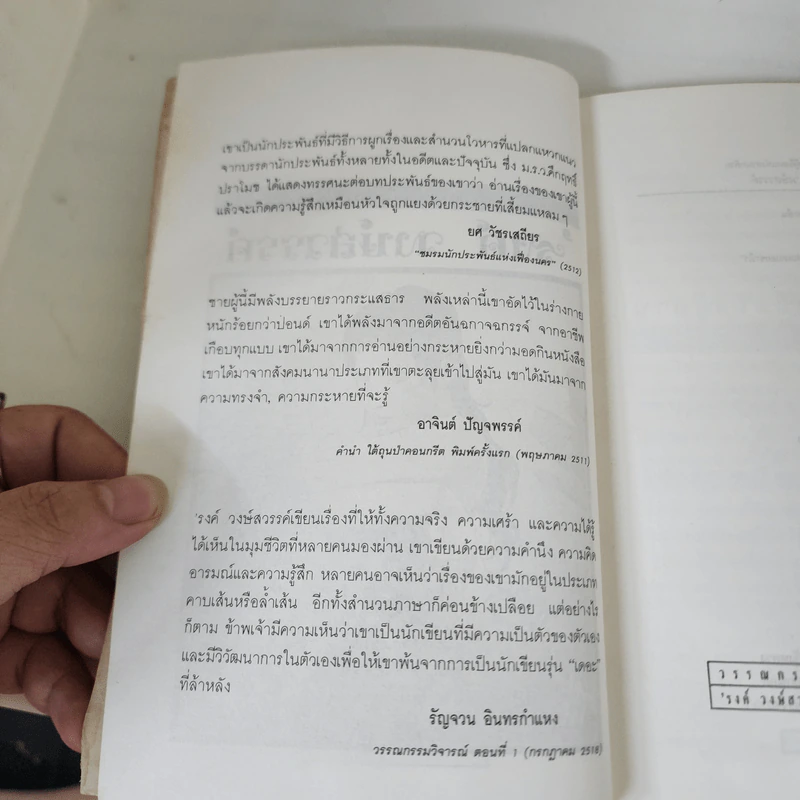 เขาเป็นนักประพันธ์ที่มีวิธีการผูกเรื่องและสำนวนโวหารที่แปลกแหวกแนว
จากบรรดานักประพันธ์ทั้งหลายทั้งในอดีตและปัจจุบัน ซึ่ง ม.ร.ว.คึกฤทธิ์
ปราโมช ได้แสดงทรรศนะต่อบทประพันธ์ของเขาว่า อ่านเรื่องของเขาผู้นี้
แล้วจะเกิดความรู้สึกเหมือนหัวใจถูกแยงด้วยกระชายที่เสี้ยมแหลม ๆ
ยศ วัชรเสถียร
"ชมรมนักประพันธ์แห่งเฟื่องนคร" (2512)
ชายผู้นี้มีพลังบรรยายราวกระแสธาร พลังเหล่านี้เขาอัดไว้ในร่างกาย
หนักร้อยกว่าปอนด์ เขาได้พลังมาจากอดีตอันฉกาจฉกรรจ์ จากอาชีพ
เกือบทุกแบบ เขาได้มาจากการอ่านอย่างกระหายยิ่งกว่ามอดกินหนังสือ
เขาได้มาจากสังคมนานาประเภทที่เขาตะลุยเข้าไปสู่มัน เขาได้มันมาจาก
ความทรงจำ, ความกระหายที่จะรู้
อาจินต์ ปัญจพรรค์
คำนำ ใต้ถุนป่าคอนกรีต พิมพ์ครั้งแรก (พฤษภาคม 2511)
'รงค์ วงษ์สวรรค์เขียนเรื่องที่ให้ทั้งความจริง ความเศร้า และความได้รู้
ได้เห็นในมุมชีวิตที่หลายคนมองผ่าน เขาเขียนด้วยความคำนึง ความคิด
อารมณ์และความรู้สึก หลายคนอาจเห็นว่าเรื่องของเขามักอยู่ในประเภท
คาบเส้นหรือล้ำเส้น อีกทั้งสำนวนภาษาก็ค่อนข้างเปลือย แต่อย่างไร
ก็ตาม ข้าพเจ้ามีความเห็นว่าเขาเป็นนักเขียนที่มีความเป็นตัวของตัวเอง
และมีวิวัฒนาการในตัวเองเพื่อให้เขาพ้นจากการเป็นนักเขียนรุ่น "เดอะ"
ที่ล้าหลัง
รัญจวน อินทรกำแหง
วรรณกรรมวิจารณ์ ตอนที่ 1 (กรกฎาคม 2518)
วรรณกร
'รงค์ วงษ์ส